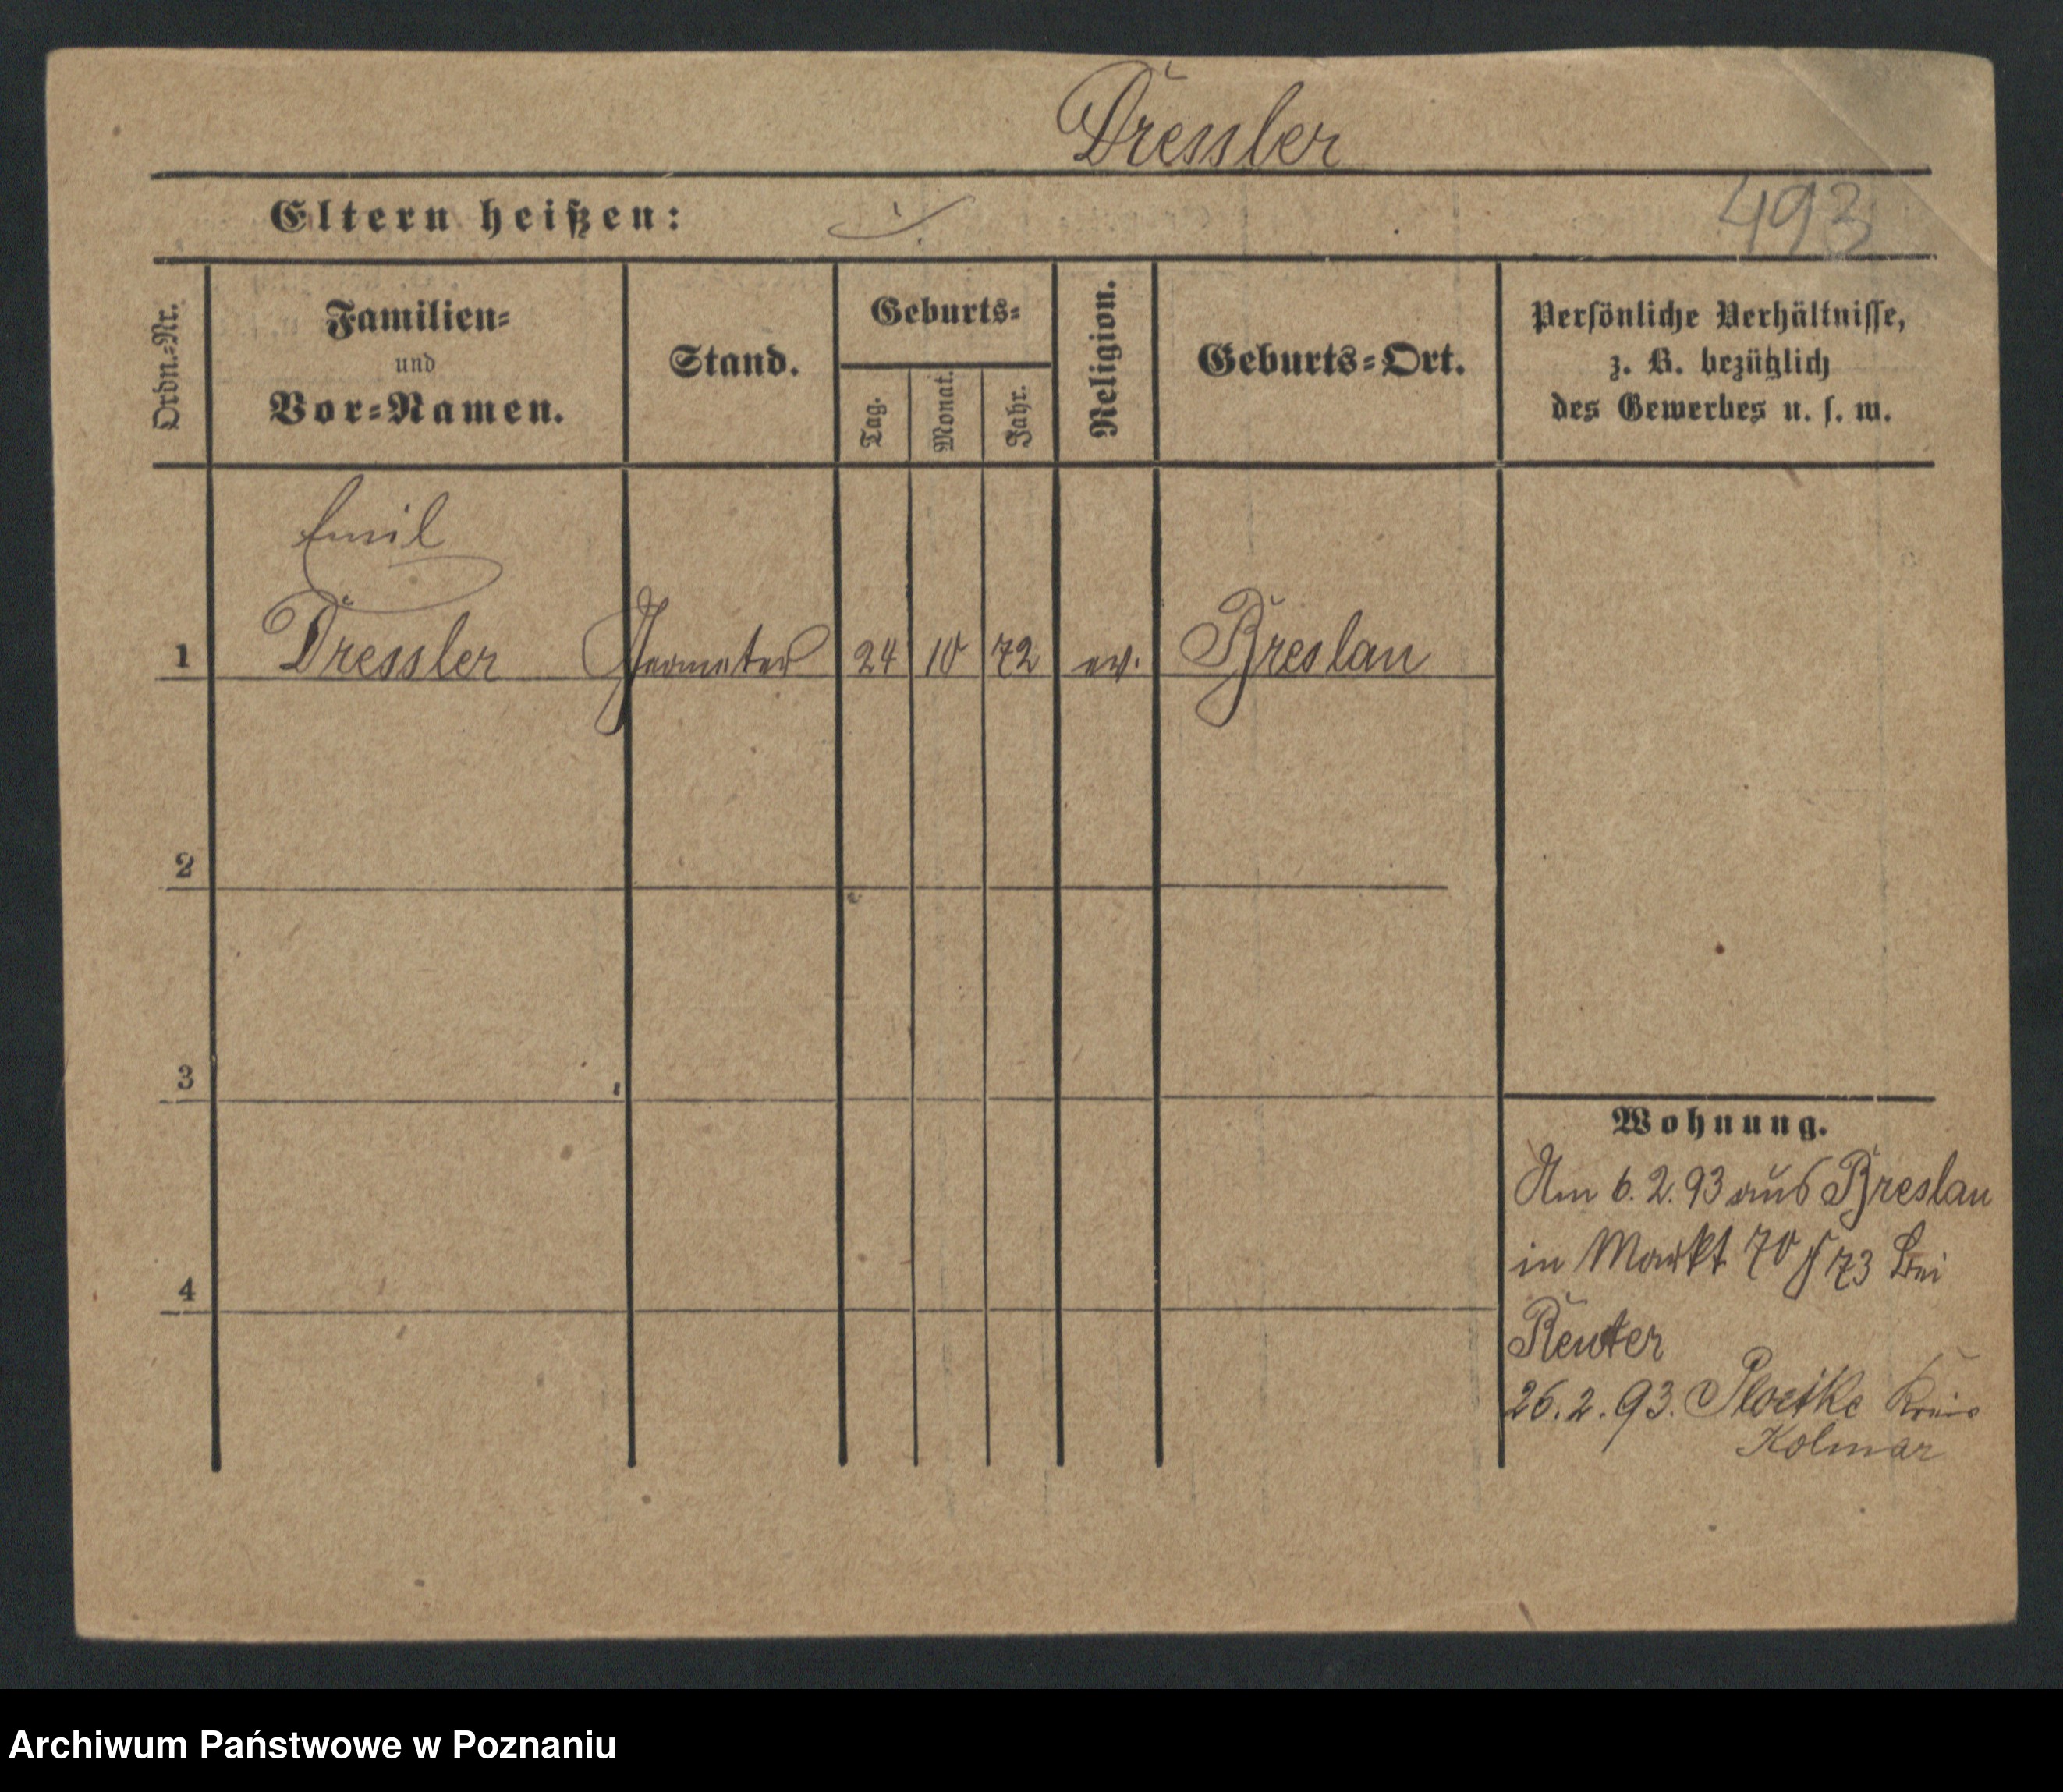 Dressler
Eltern heißen: ./.
493
Ordn.-Nr.
Familien-
und
Vor-Namen.
Stand.
Geburts-
Tag.
Monat.
Jahr.
Religion.
Geburts-Ort.
Persönliche Verhältnisse,
z. B. bezüglich
des Gewerbes u. s. w.
Emil
1 Dressler Geometer 24 10 72 ev. Breslau
2
3
4
Wohnung.
Am 6. 2. 93 aus Breslau
in Markt 70 73 bei
Reuter
26. 2. 93. Ploetke Kreis
Kolmar
Archiwum Państwowe w Poznaniu